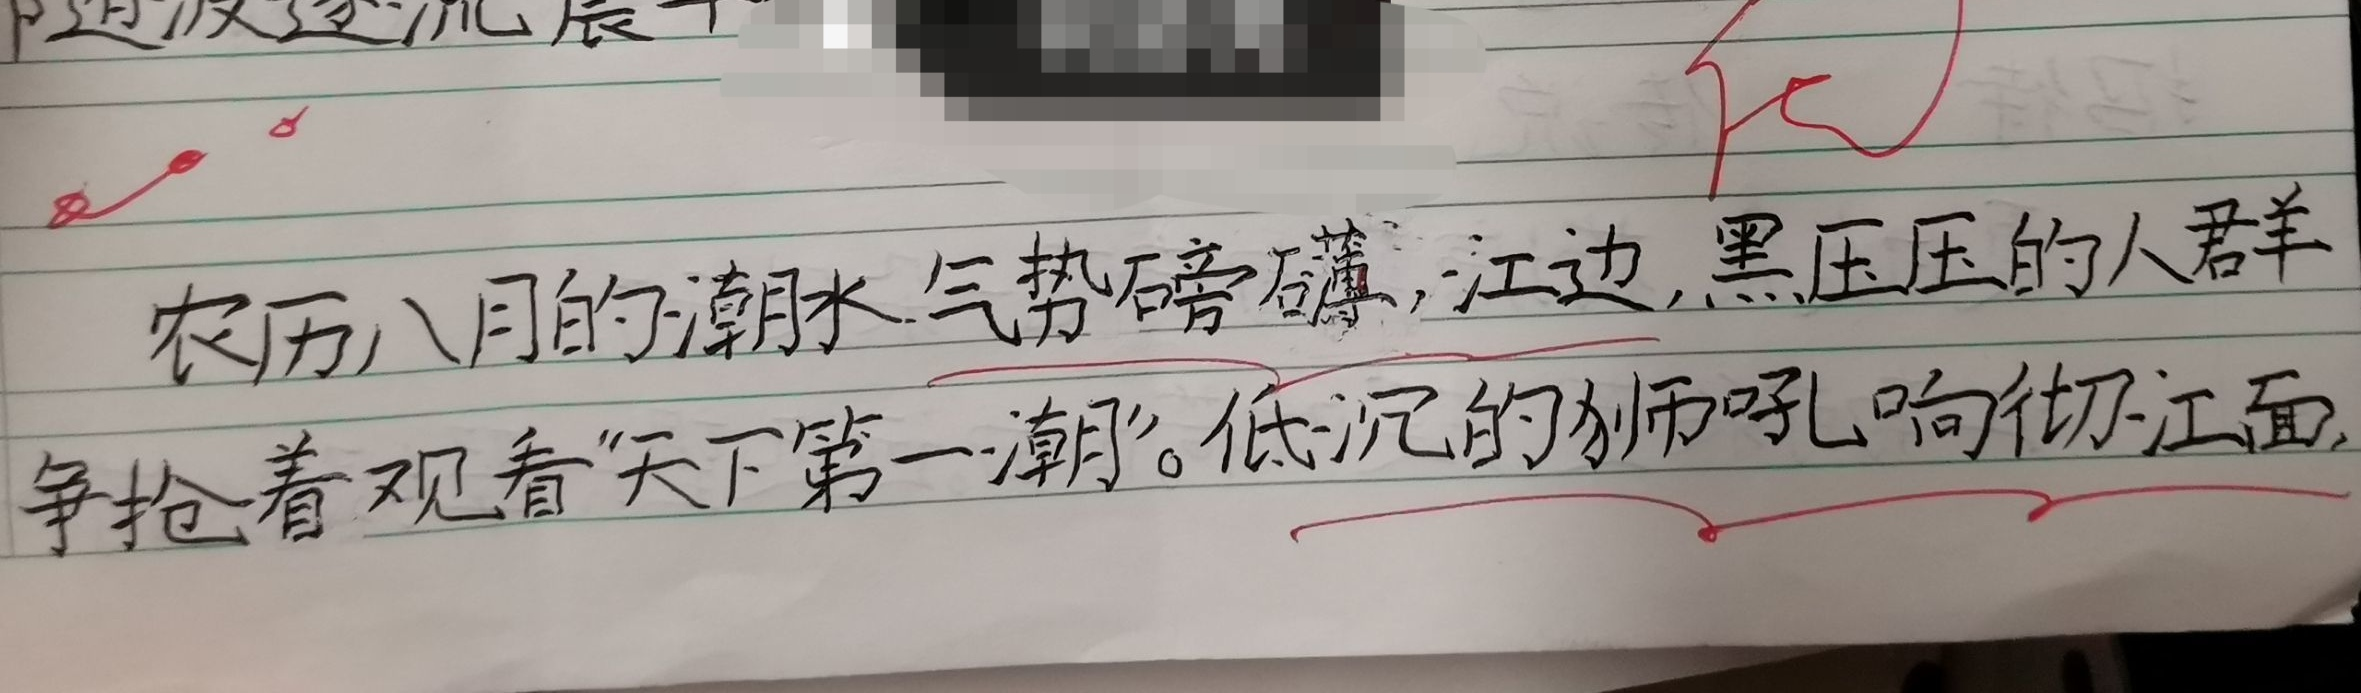 随波逐流展
农历八月的潮水气势磅礴，江边，黑压压的人群
争抢着观看“天下第一潮”。低沉的狮吼响彻江面，